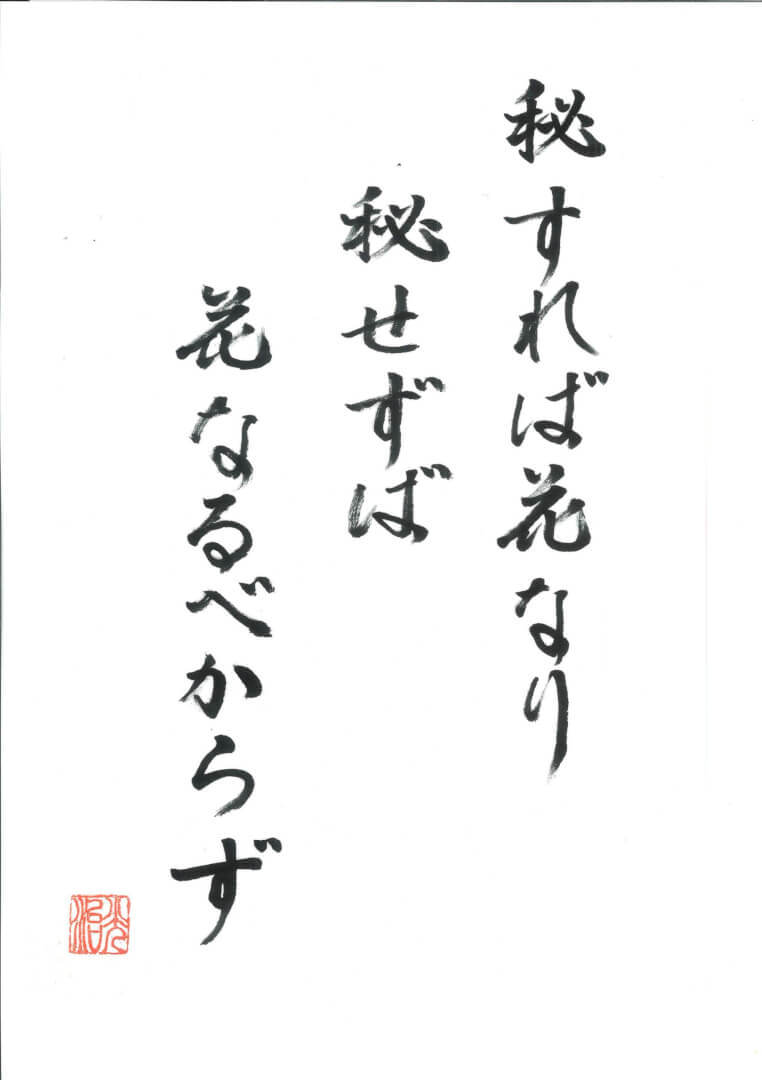 秘すれば花なり
秘せずば
花なるべからず